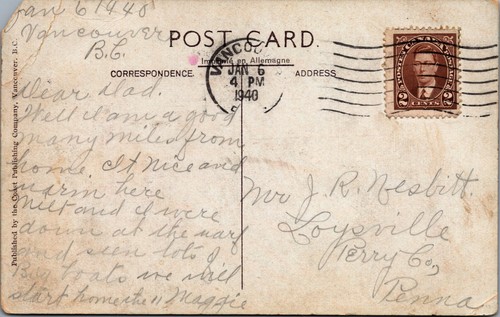 Jan 6 1940
Vancouver
B.C.
POST CARD.
Imprimé en Allemagne
CORRESPONDENCE.
ADDRESS
VANCOU
JAN 6
4 PM
1940
POSTES CANADA POSTAGE
2 CENTS 2
Dear Dad.
Well I am a good
many miles from
home. It nice and
warm here
Milt and I were
down at the warf
and seen lots of
Big boats we will
start home the 11 Maggie
Mr J. R. Nesbitt.
Loysville
Perry Co.,
Penna
Published by the Coast Publishing Company, Vancouver, B.C.